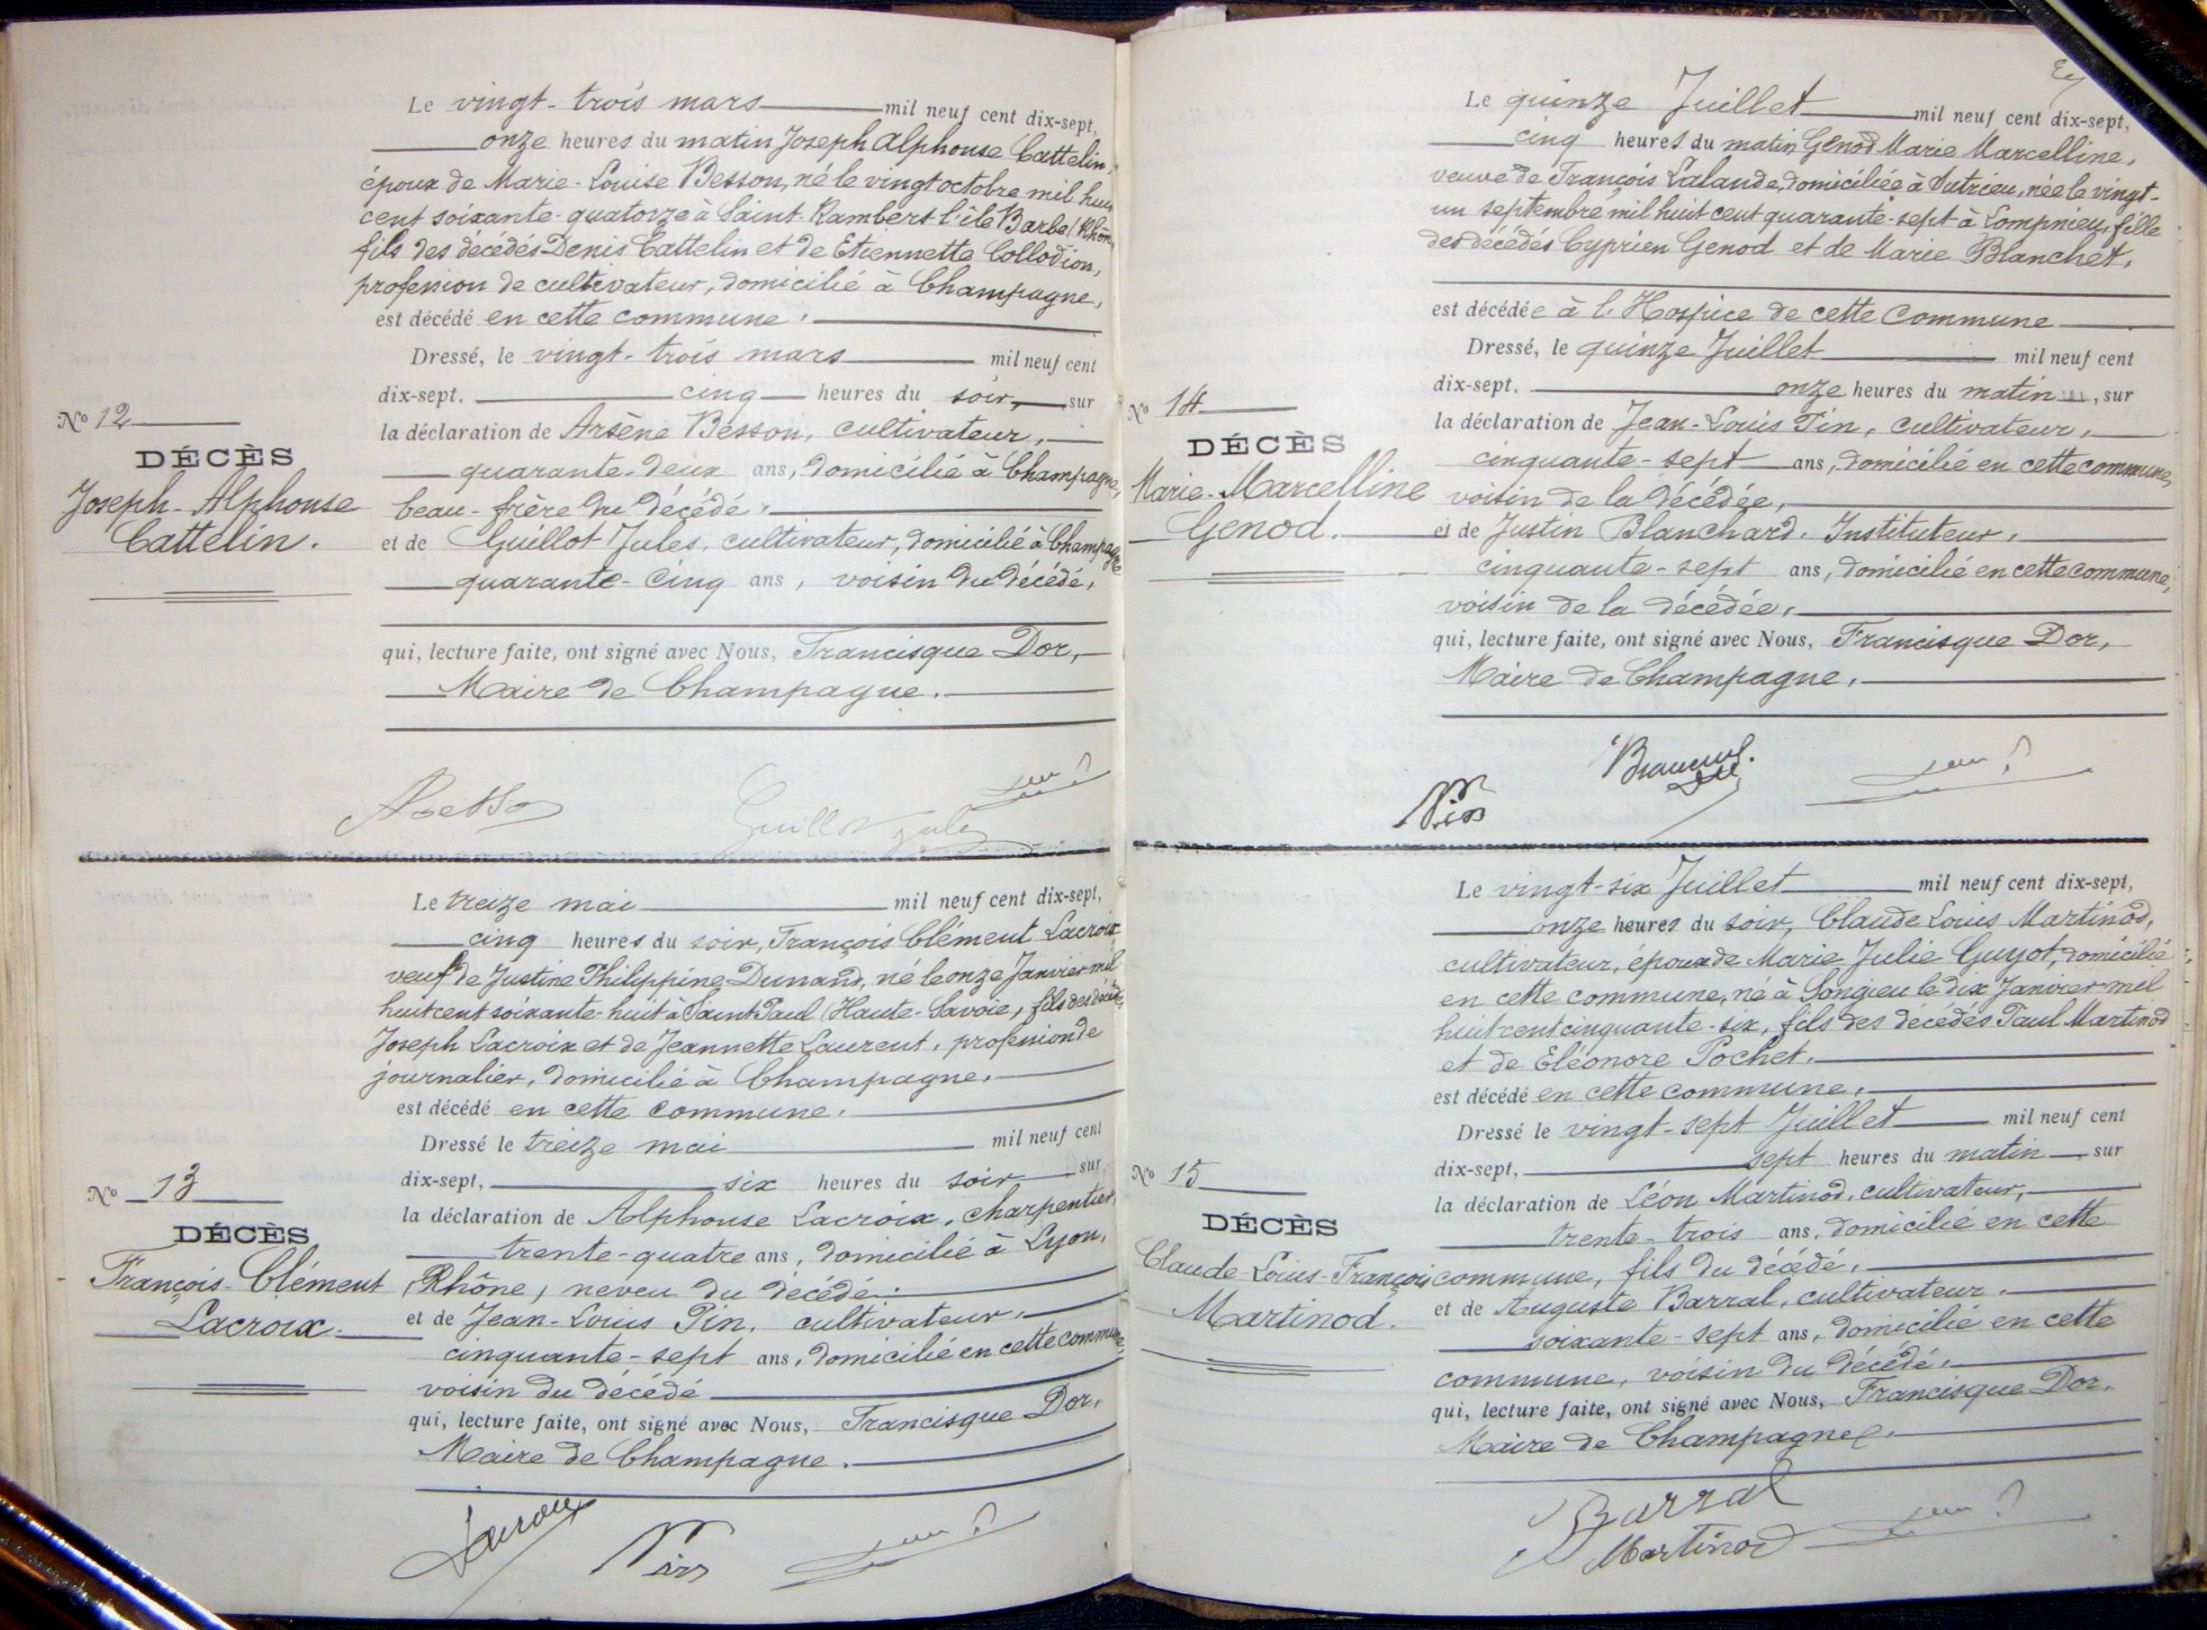 Le vingt-trois mars mil neuf cent dix-sept,
onze heures du matin Joseph Alphonse Cattelin,
époux de Marie-Louise Besson, né le vingt octobre mil huit
cent soixante-quatorze à Saint-Rambert l'île Barbe (Rhône)
fils des décédés Denis Cattelin et de Etiennette Collodion,
profession de cultivateur, domicilié à Champagne,
est décédé en cette commune.
Dressé, le vingt-trois mars mil neuf cent
dix-sept. cinq heures du soir, sur
la déclaration de Arsène Besson, cultivateur,
quarante-deux ans, domicilié à Champagne,
beau-frère du décédé,
et de Guillot Jules, cultivateur, domicilié à Champagne
quarante-cinq ans, voisin du décédé,
qui, lecture faite, ont signé avec Nous, Francisque Dor,
Maire de Champagne.
No 12
DÉCÈS
Joseph-Alphonse
Cattelin.
ABesson
Guillot Jules
Le treize mai mil neuf cent dix-sept,
cinq heures du soir, François Clément Lacroix
veuf de Justine Philippine Dunand, né le onze Janvier mil
huit cent soixante-huit à Saint Paul (Haute-Savoie, fils des décédés
Joseph Lacroix et de Jeannette Laurent, profession de
journalier, domicilié à Champagne,
est décédé en cette commune.
Dressé le treize mai mil neuf cent
dix-sept, six heures du soir sur
la déclaration de Alphonse Lacroix, charpentier,
trente-quatre ans, domicilié à Lyon,
(Rhône) neveu du décédé
et de Jean-Louis Pin, cultivateur,
cinquante-sept ans, domicilié en cette commune,
voisin du décédé
qui, lecture faite, ont signé avec Nous, Francisque Dor,
Maire de Champagne.
No 13
DÉCÈS
François-Clément
Lacroix.
Lacroix
Pin
Le quinze Juillet mil neuf cent dix-sept,
cinq heures du matin Genod Marie Marcelline,
veuve de François Lalande, domiciliée à Sutrieu, née le vingt-
un septembre mil huit cent quarante-sept à Lompnieu, fille
des décédés Cyprien Genod et de Marie Blanchet,
est décédée à l'Hospice de cette Commune
Dressé, le quinze Juillet mil neuf cent
dix-sept. onze heures du matin, sur
la déclaration de Jean-Louis Pin, cultivateur,
cinquante-sept ans, domicilié en cette commune,
voisin de la décédée,
et de Justin Blanchard, Instituteur,
cinquante-sept ans, domicilié en cette commune,
voisin de la décédée,
qui, lecture faite, ont signé avec Nous, Francisque Dor,
Maire de Champagne.
No 14
DÉCÈS
Marie-Marcelline
Genod.
Pin
Le vingt-six Juillet mil neuf cent dix-sept,
onze heures du soir, Claude Louis Martinod,
cultivateur, époux de Marie Julie Guyot, domicilié
en cette commune, né à Songieu le dix Janvier mil
huit cent cinquante-six, fils des décédés Paul Martinod
et de Eléonore Pochet,
est décédé en cette commune,
Dressé le vingt-sept Juillet mil neuf cent
dix-sept, sept heures du matin, sur
la déclaration de Léon Martinod, cultivateur,
trente-trois ans, domicilié en cette
commune, fils du décédé,
et de Auguste Barral, cultivateur,
soixante-sept ans, domicilié en cette
commune, voisin du décédé,
qui, lecture faite, ont signé avec Nous, Francisque Dor,
Maire de Champagne.
No 15
DÉCÈS
Claude-Louis-François
Martinod.
Barral
Martinod